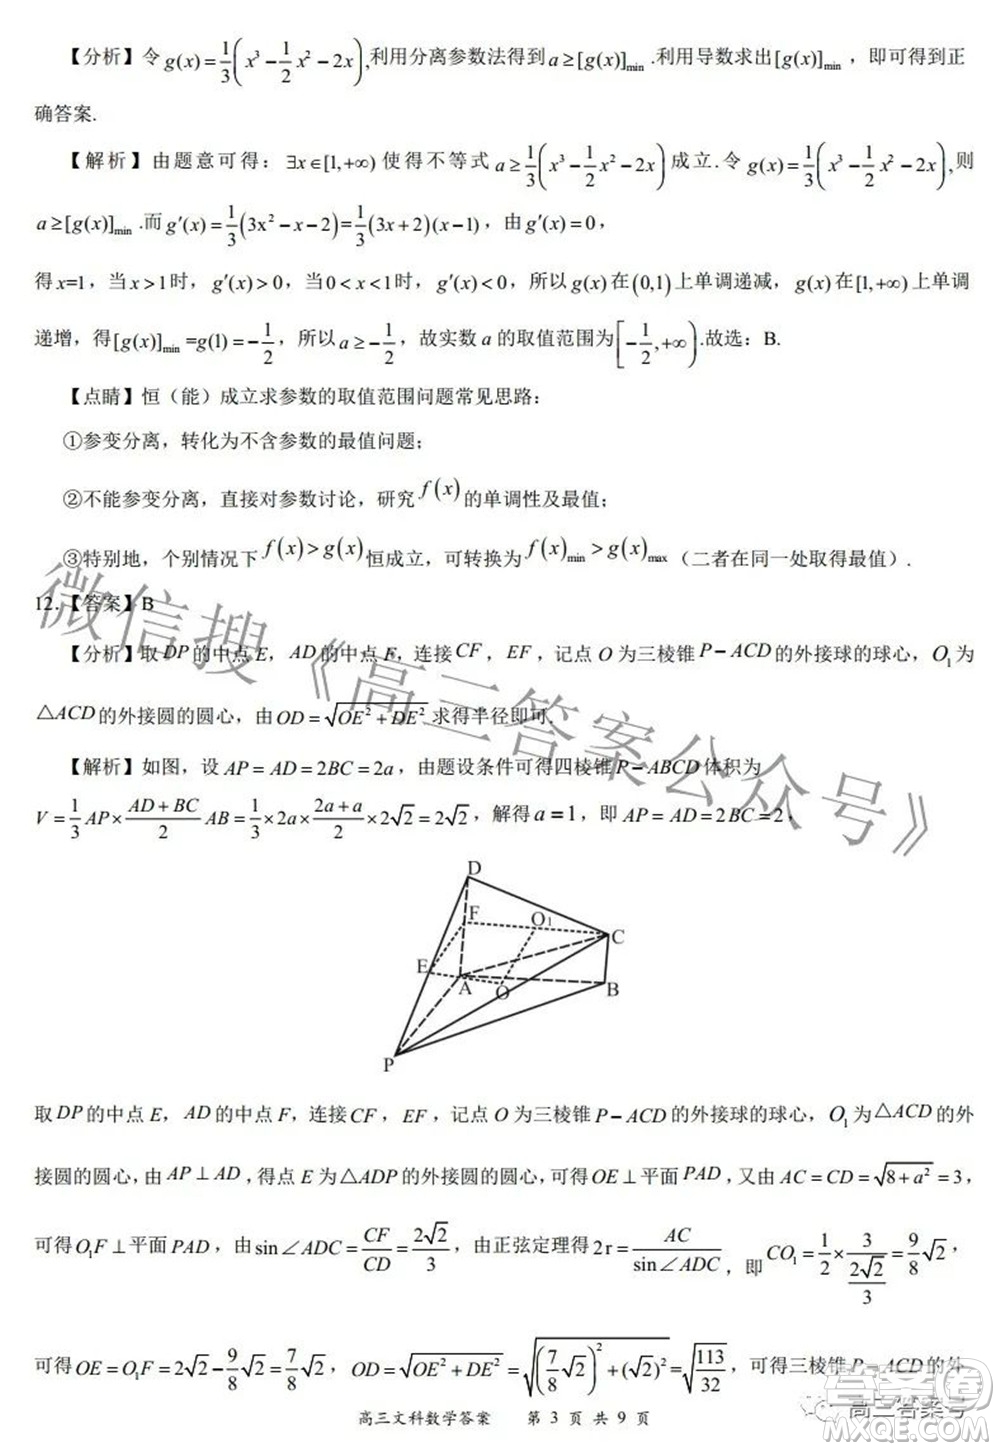 【分析】令 g(x)=1/3(x³−1/2x²−2x),利用分离参数法得到 a≥[g(x)]min .利用导数求出 [g(x)]min ，即可得到正
确答案.
【解析】由题意可得：∃x∈[1,+∞) 使得不等式 a≥1/3(x³−1/2x²−2x)成立.令 g(x)=1/3(x³−1/2x²−2x),则
a≥[g(x)]min .而 g′(x)=1/3(3x²−x−2)=1/3(3x+2)(x−1)，由 g′(x)=0，
得 x=1，当 x>1时，g′(x)>0，当 0<x<1时，g′(x)<0，所以 g(x)在(0,1)上单调递减，g(x)在[1,+∞)上单调
递增，得[g(x)]min =g(1)=−1/2，所以 a≥−1/2，故实数 a 的取值范围为[−1/2,+∞).故选：B.
【点睛】恒（能）成立求参数的取值范围问题常见思路：
①参变分离，转化为不含参数的最值问题；
②不能参变分离，直接对参数讨论，研究 f(x)的单调性及最值；
③特别地，个别情况下 f(x)>g(x)恒成立，可转换为 f(x)min>g(x)max（二者在同一处取得最值）.
12.【答案】B
【分析】取DP的中点 E，AD的中点 F，连接CF，EF，记点 O 为三棱锥 P−ACD 的外接球的球心，O₁ 为
△ACD 的外接圆的圆心，由 OD=√(OE²+DE²) 求得半径即可.
【解析】如图，设 AP=AD=2BC=2a，由题设条件可得四棱锥 P−ABCD 体积为
V=1/3AP×(AD+BC)/2 AB=1/3×2a×(2a+a)/2×2√2=2√2，解得 a=1，即 AP=AD=2BC=2，
D
F
O₁
C
E
A
O
B
P
取DP的中点 E，AD 的中点 F，连接CF，EF，记点 O 为三棱锥 P−ACD 的外接球的球心，O₁ 为△ACD 的外
接圆的圆心，由 AP⊥AD，得点 E 为△ADP 的外接圆的圆心，可得 OE⊥平面 PAD，又由 AC=CD=√(8+a²)=3，
可得O₁F⊥平面PAD，由 sin∠ADC=CF/CD=2√2/3，由正弦定理得 2r=AC/sin∠ADC，即 CO₁=1/2×3/(2√2/3)=9/8√2，
可得 OE=O₁F=2√2−9/8√2=7/8√2，OD=√(OE²+DE²)=√((7/8√2)²+(√2)²)=√(113/32)，可得三棱锥 P−ACD 的外
高三文科数学答案 第 3 页 共 9 页
微信搜《高三答案公众号》
高三答案号
答案圈
MXQE.COM